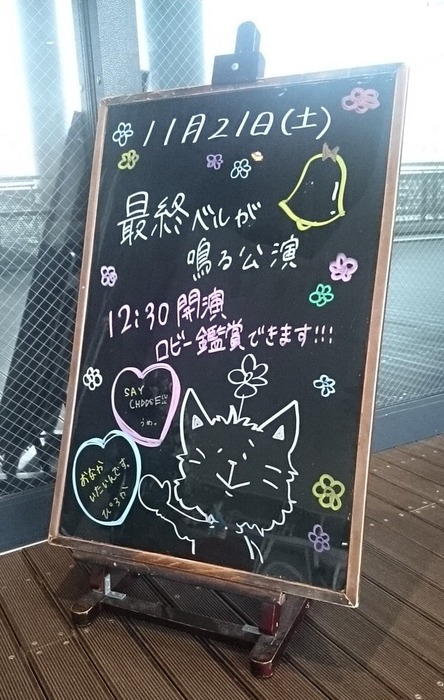 11月21日(土)
最終ベルが
鳴る公演
12:30開演
ロビー鑑賞できます!!!
SAY
うめ。
おなか
いたいんです。
ぴろたく